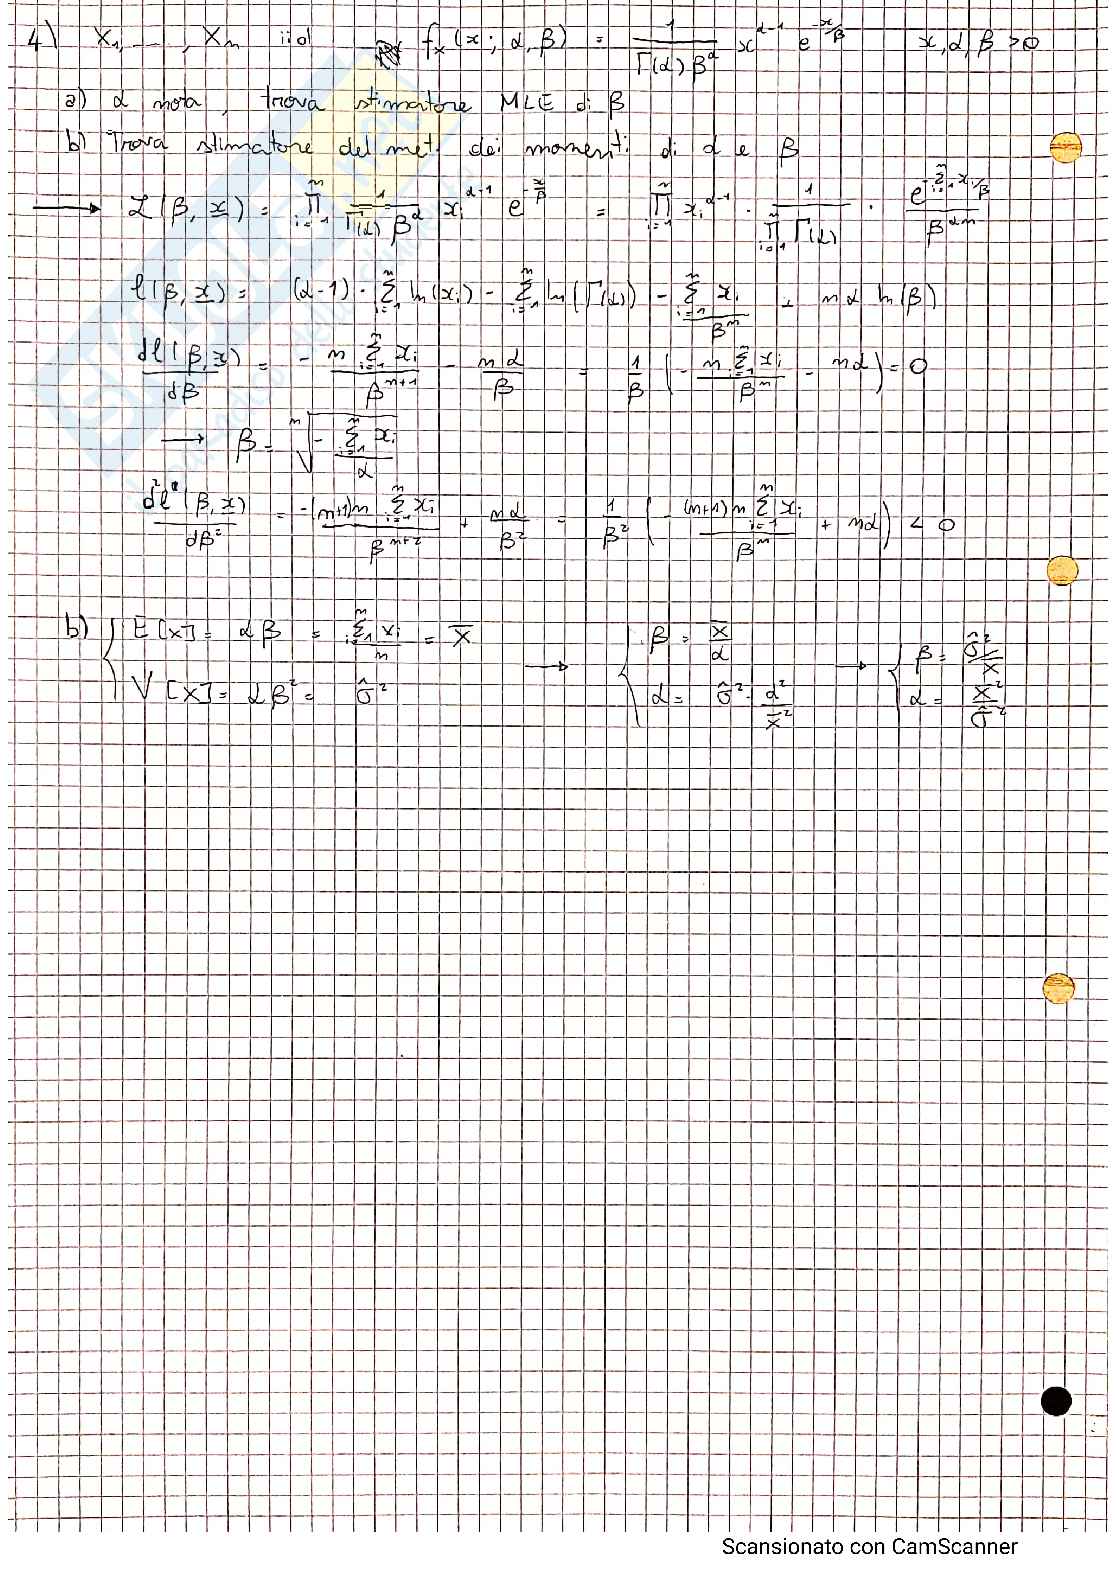 4) X₁, ..., Xₙ iid fₓ(x; α, β) = 1/(Γ(α) β^α) x^(α-1) e^(-x/β) x, α, β > 0
a) α nota, trova stimatore MLE di β
b) Trova stimatore del met. dei momenti di α e β
→ L(β, x) = ∏_{i=1}^n 1/(Γ(α) β^α) xᵢ^(α-1) e^(-x/β) = ∏_{i=1}^n xᵢ^(α-1) · 1/(∏_{i=1}^n Γ(α)) · e^(-∑_{i=1}^n xᵢ/β)/β^(αn)
l(β, x) = (α-1) · ∑_{i=1}^n ln(xᵢ) - ∑_{i=1}^n ln(Γ(α)) - (∑_{i=1}^n xᵢ)/βⁿ + nα ln(β)
dl(β, x)/dβ = - (n ∑_{i=1}^n xᵢ)/β^(n+1) - nα/β = 1/β (- (n ∑_{i=1}^n xᵢ)/βⁿ - nα) = 0
→ β = ⁿ√(- (∑_{i=1}^n xᵢ)/α)
d²l(β, x)/dβ² = -((n+1)n ∑_{i=1}^n xᵢ)/β^(n+2) + nα/β² = 1/β² (- ((n+1) n ∑_{i=1}^n xᵢ)/βⁿ + nα) < 0
b) { E[X] = αβ = (∑_{i=1}^n xᵢ)/n = X̄ → { β = X̄/α → { β = σ̂²/X̄
V[X] = αβ² = σ̂² α = σ̂² · α²/X̄² α = X̄²/σ̂²
Scansionato con CamScanner